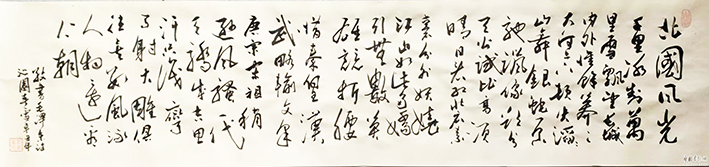 北國風光
千里冰封萬
里雪飄望長城
內外惟餘莽莽
大河上下頓失滔滔
山舞銀蛇原
馳蠟象欲與
天公試比高須
晴日看紅裝素
裹分外妖嬈
江山如此多嬌
引無數英
雄競折腰
惜秦皇漢
武略輸文采
唐宗宋祖稍
遜風騷一代
天驕成吉思
汗只識彎
弓射大雕俱
往矣數風流
人物還看
今朝
敬書毛澤東詩
沁園春雪